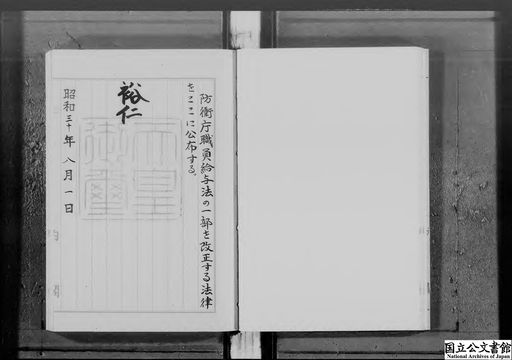 防衛庁職員給与法の一部を改正する法律
をここに公布する。
裕仁
天皇
御璽
昭和三十年八月一日
国立公文書館
National Archives of Japan